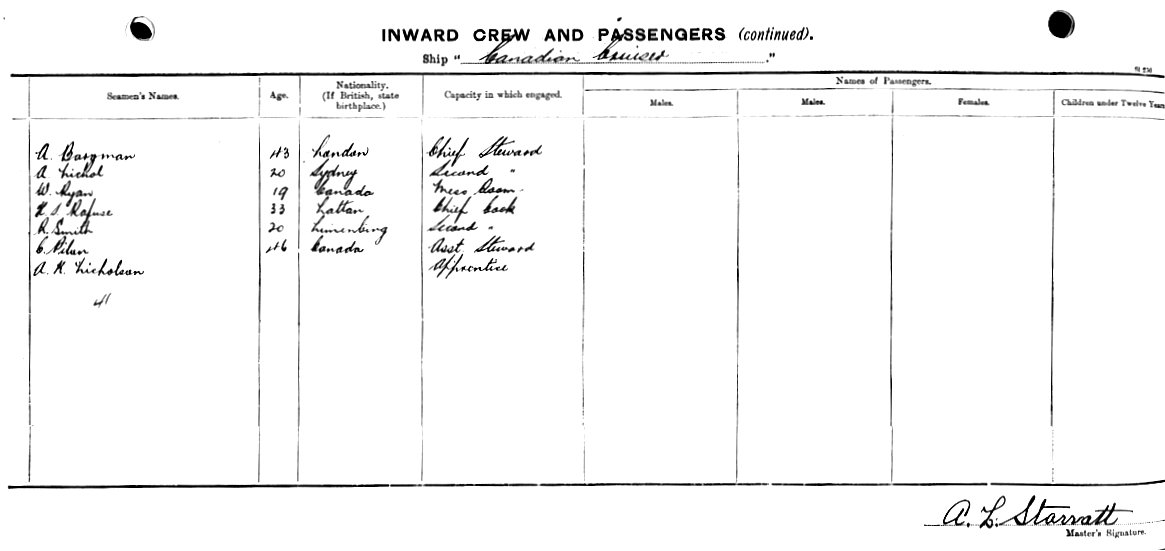 INWARD CREW AND PASSENGERS (continued).
Ship " Canadian Cruiser "
Seamen's Names. Age. Nationality. (If British, state birthplace.) Capacity in which engaged. Names of Passengers.
Males. Males. Females. Children under Twelve Years
A. Bargman 43 London Chief Steward
A. Nichol 20 Sydney Second "
W. Ryan 19 Canada Mess Room
H. S. Rafuse 33 Chief Cook
R. Smith 20 Lunenburg Second "
C. 46 Canada Asst. Steward
A. K. Nicholson Apprentice
41
A. L. Starratt
Master's Signature.